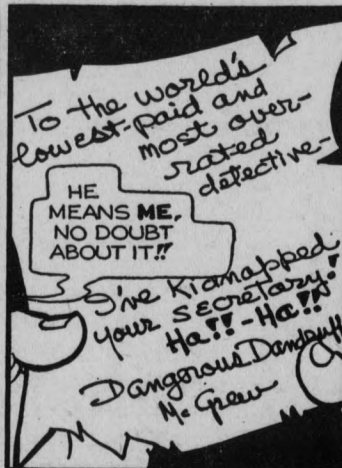 To the world's
lowest-paid and
most over-
rated
detective-
HE
MEANS ME,
NO DOUBT
ABOUT IT!!
I've Kidnapped
your secretary!
Ha!!-Ha!!
Dangerous Dandruff
McGrew